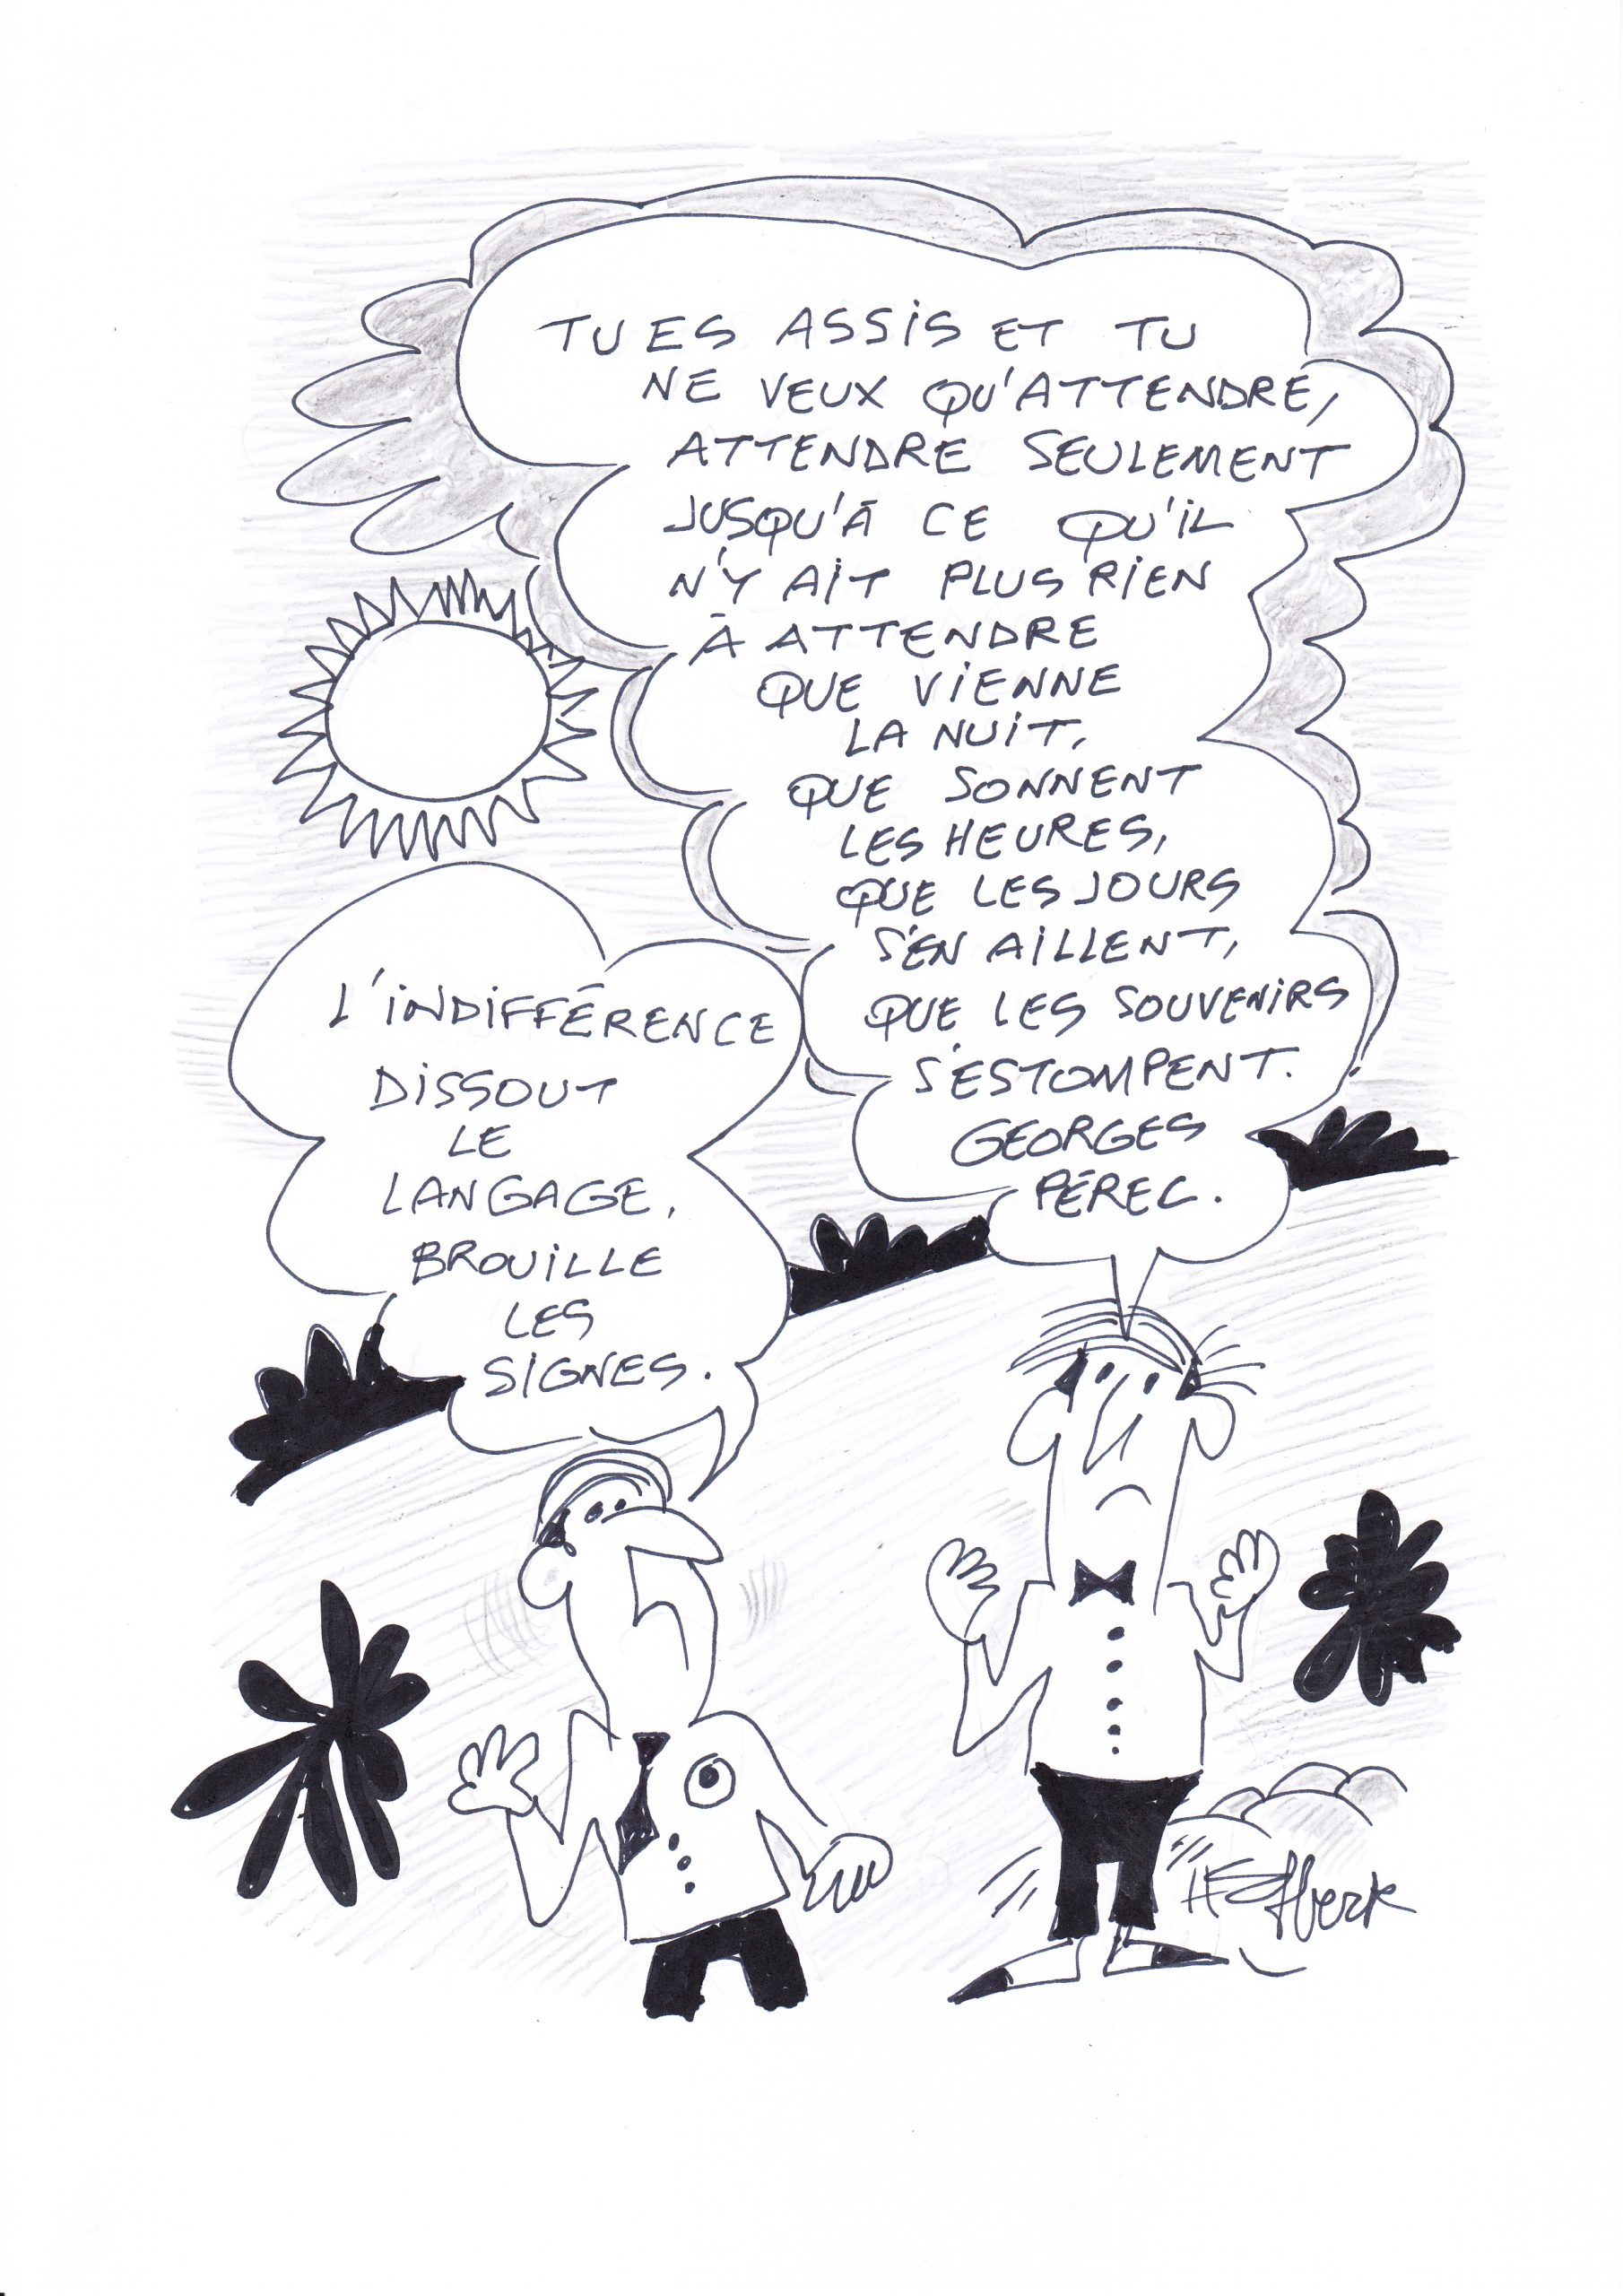 TU ES ASSIS ET TU
NE VEUX QU'ATTENDRE,
ATTENDRE SEULEMENT
JUSQU'À CE QU'IL
N'Y AIT PLUS RIEN
À ATTENDRE
QUE VIENNE
LA NUIT,
QUE SONNENT
LES HEURES,
QUE LES JOURS
S'EN AILLENT,
QUE LES SOUVENIRS
S'ESTOMPENT.
GEORGES
PÉREC.
L'INDIFFÉRENCE
DISSOUT
LE
LANGAGE,
BROUILLE
LES
SIGNES.